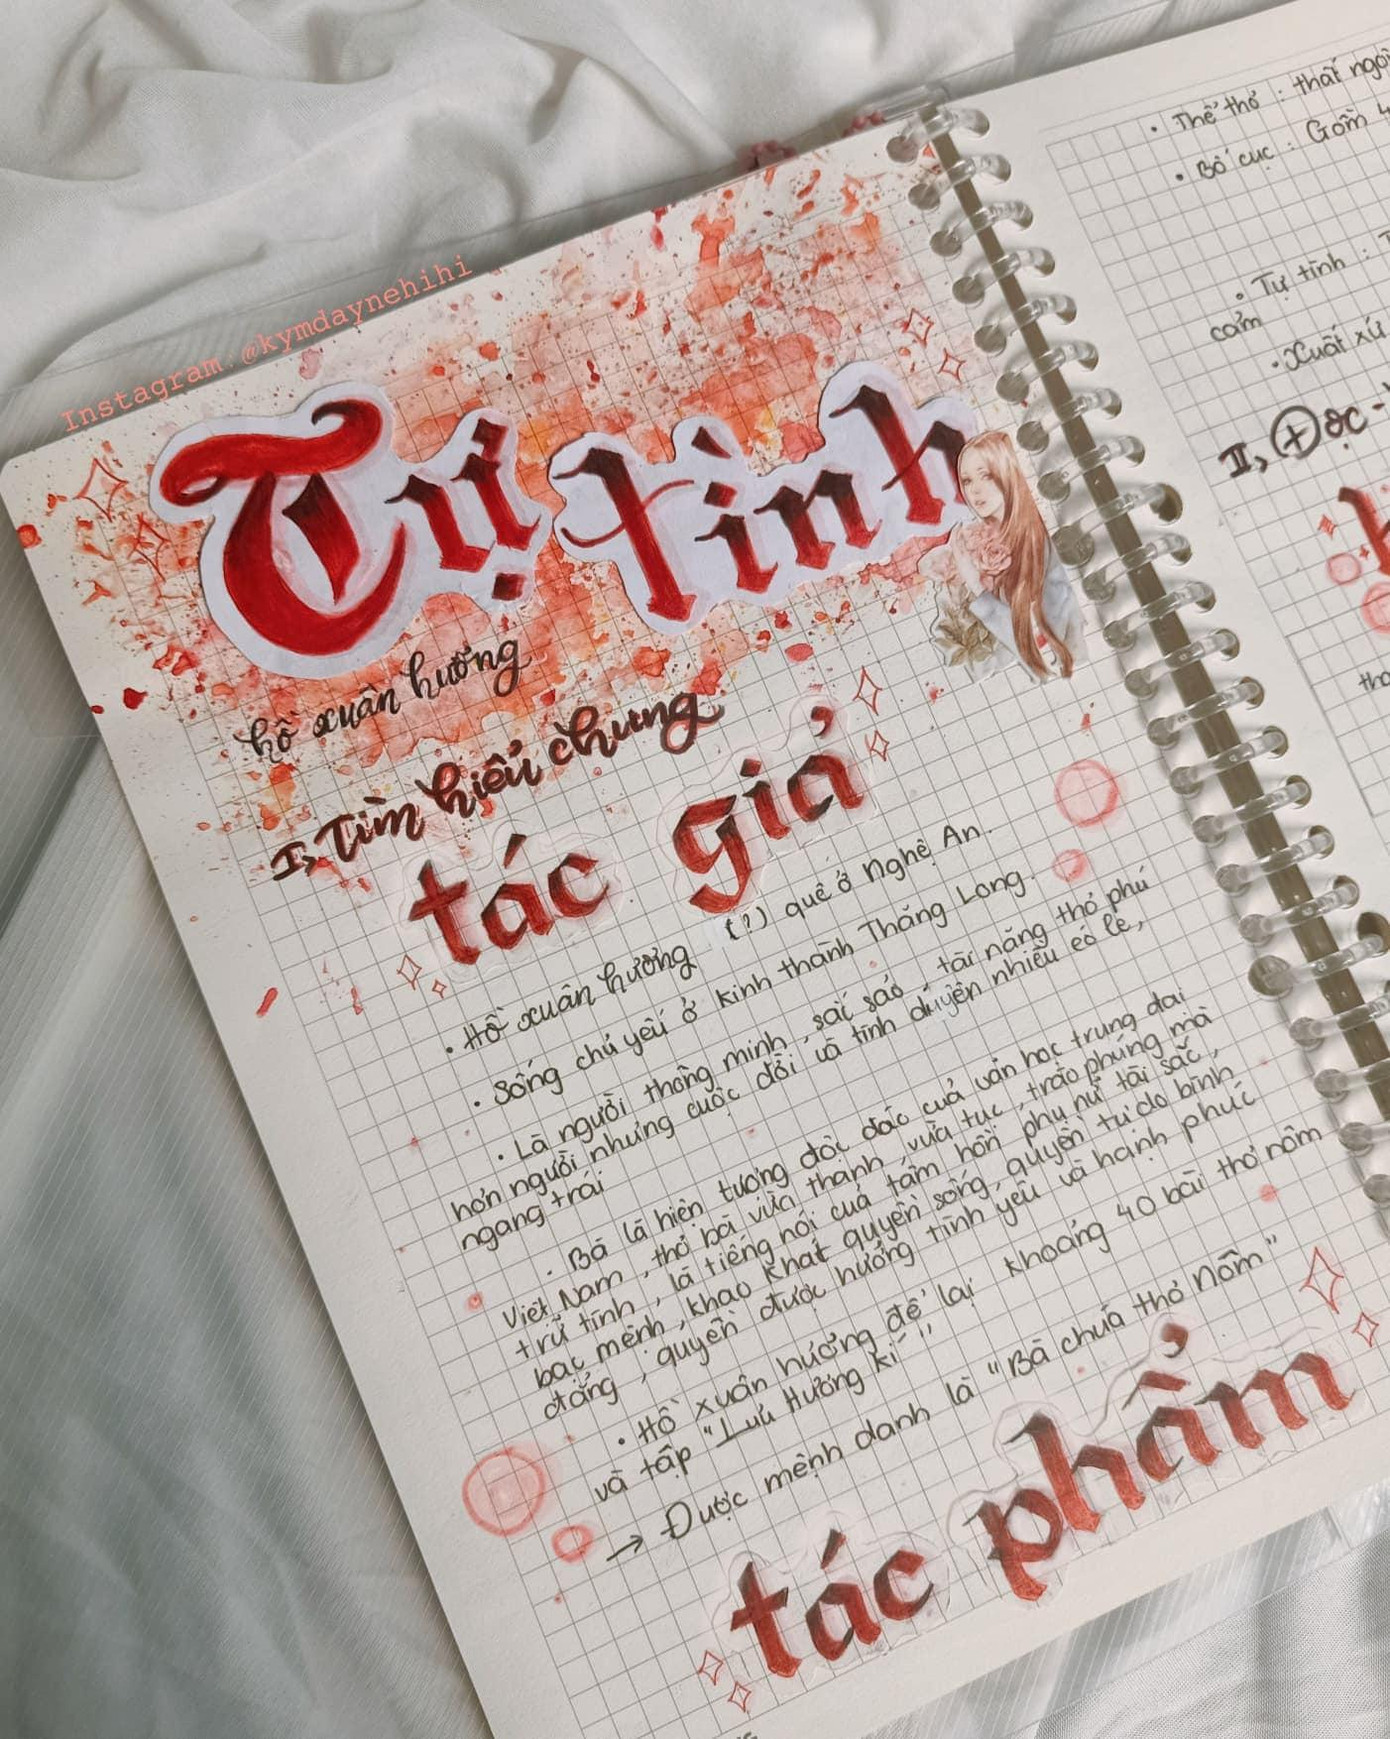 Instagram: @kymdaynehihi
Tự tình
hồ xuân hương
I, Tìm hiểu chung
tác giả
• Hồ xuân hương (?) quê ở Nghệ An.
• Sống chủ yếu ở kinh thành Thăng Long.
• Là người thông minh, sắc sảo, tài năng thơ phú
hơn người nhưng cuộc đời và tình duyên nhiều éo le,
ngang trái
• Bà là hiện tượng độc đáo của văn học trung đại
Việt Nam, thơ bà vừa thanh, vừa tục, trào phúng mà
trữ tình, là tiếng nói của tâm hồn phụ nữ tài sắc,
bạc mệnh, khao khát quyền sống, quyền tự do bình
đẳng, quyền được hưởng tình yêu và hạnh phúc
• Hồ xuân hương để lại khoảng 40 bài thơ nôm
và tập "Lưu Hương kí"
→ Được mệnh danh là "Bà chúa thơ Nôm"
tác phẩm
• Thể thơ: thất ngôn
• Bố cục: Gồm 4
• Tự tình:
cảm
• Xuất xứ
II, Đọc -